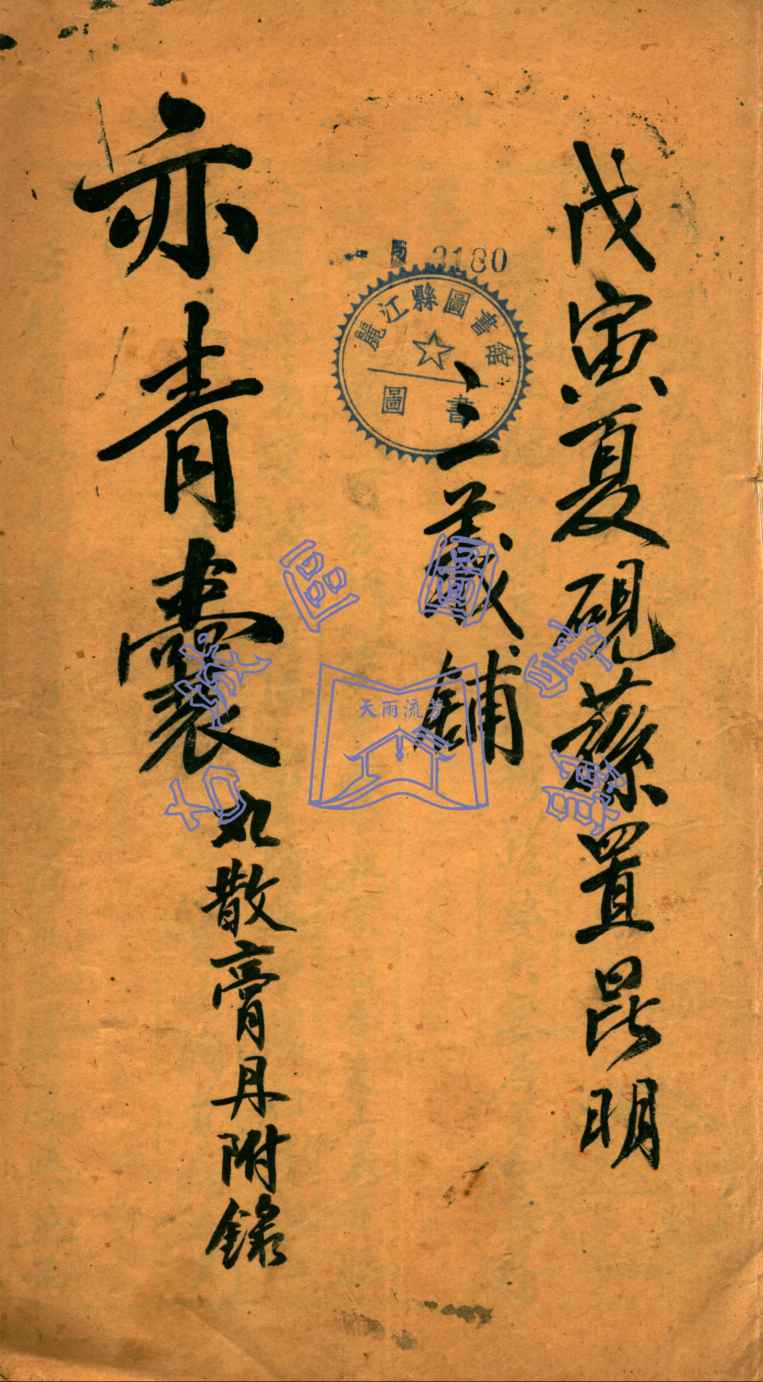 戊寅夏硯蓀置昆明
二義鋪
亦青囊
丸散膏丹附錄
3180
麗江縣圖書館
圖書
天雨流芳
古城區圖書館